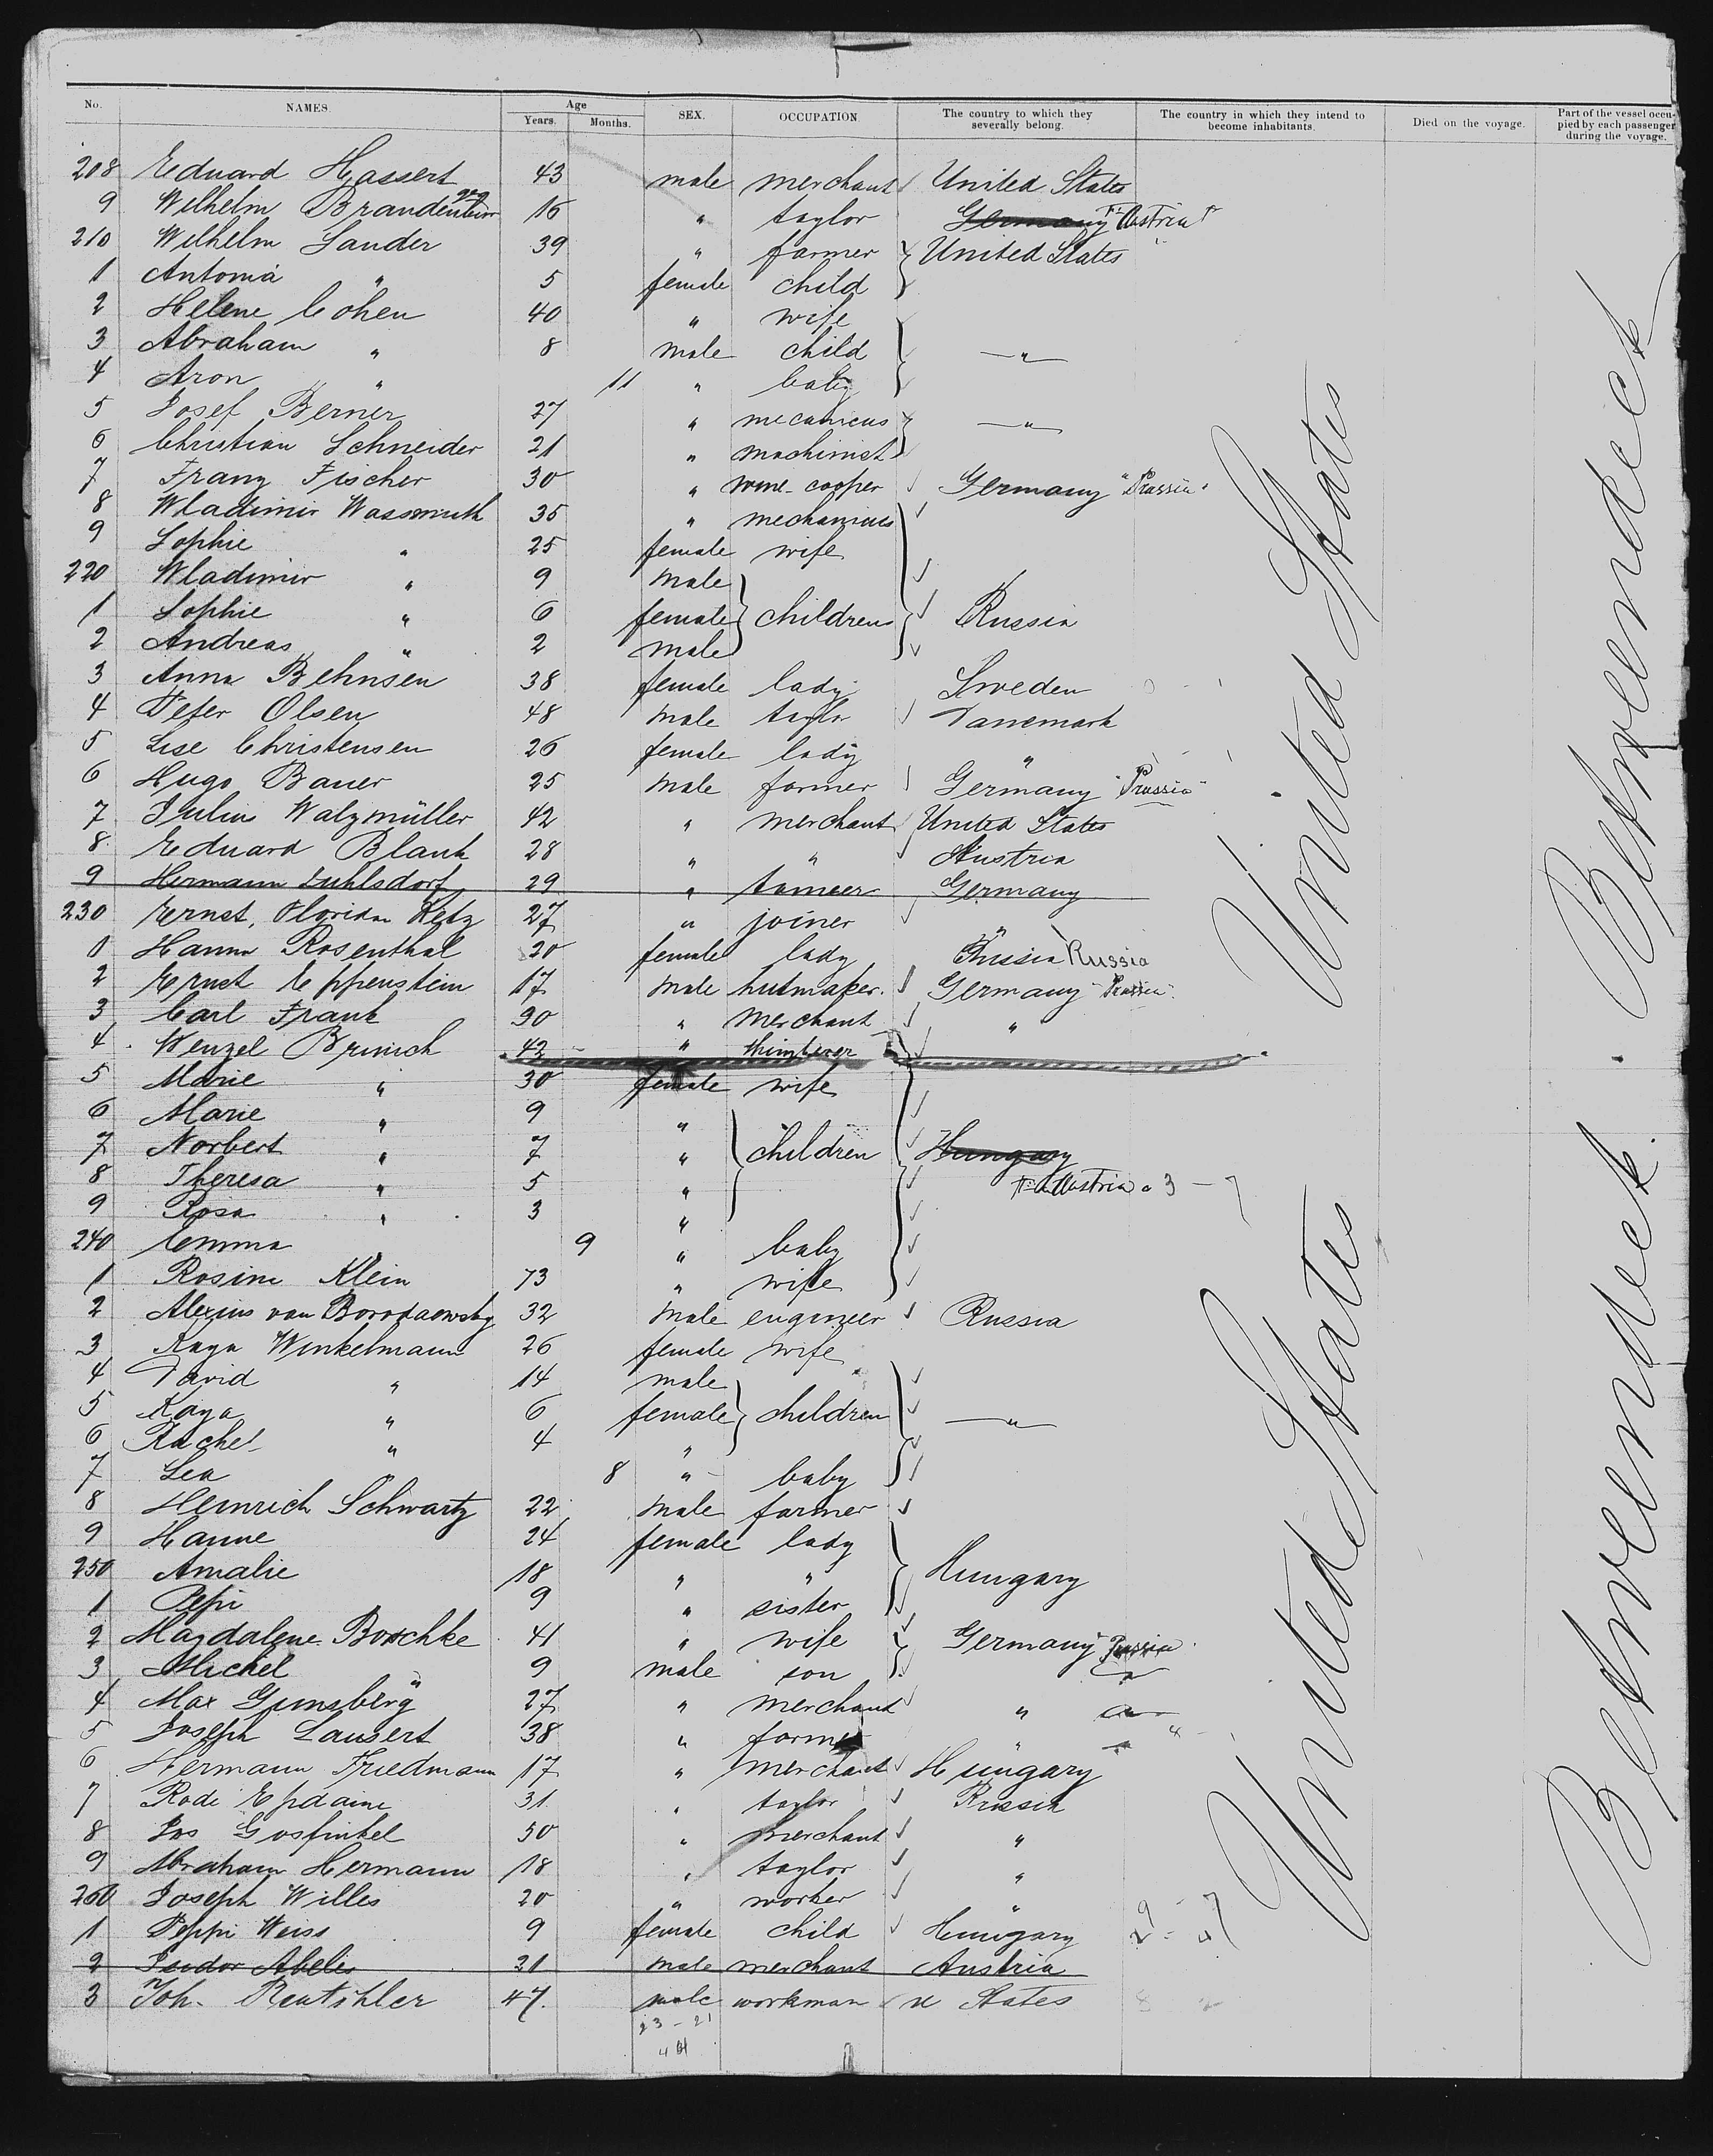 No. NAMES. Age Years. Months. SEX. OCCUPATION The country to which they severally belong. The country in which they intend to become inhabitants. Died on the voyage. Part of the vessel occupied by each passenger during the voyage.
208 Eduard Hassert 43 male merchant United States
9 Wilhelm Brandenburg 16 " taylor Germany Austria
210 Wilhelm Sander 39 " farmer United States
1 Antonia " 5 female child
2 Helene Cohen 40 " wife
3 Abraham " 8 male child "
4 Aron " 11 " baby
5 Josef Berner 27 " mecanicus "
6 Christian Schneider 21 " machinist
7 Franz Fischer 30 " wine-cooper Germany "Prussia"
8 Wladimir Wassmuth 35 " mechanicus
9 Sophie " 25 female wife
220 Wladimir " 9 male
1 Sophie " 6 female children Russia
2 Andreas " 2 male
3 Anna Behnsen 38 female lady Sweden
4 Peter Olsen 48 male taylor Danemark
5 Lise Christensen 26 female lady "
6 Hugo Bauer 25 male farmer Germany "Prussia"
7 Julius Walzmüller 42 " merchant United States
8 Eduard Blank 28 " " Austria
9 Hermann Duhlsdorf 29 " Germany
230 Ernst, Floridan Retz 27 " joiner "
1 Hanna Rosenthal 20 female lady Russia
2 Ernst Eppenstein 17 male hutmaker Germany "Prussia"
3 Carl Frank 30 " merchant "
4 Wenzel 42 "
5 Marie " 30 female wife
6 Marie " 9 "
7 Norbert " 7 " children Hungary
8 Theresa " 5 " Austria 3 - 7
9 Rosa " 3 "
240 Emma " 9 " baby
1 Rosine Klein 73 " wife
2 Alexius van Borodaewsky 32 male engineer Russia
3 Kaya Winkelmann 26 female wife
4 David " 14 male
5 Kaya " 6 female children "
6 Rachel " 4 "
7 Lea 8 " baby
8 Heinrich Schwartz 22 male farmer
9 Hanne 24 female lady
250 Amalie 18 " " Hungary
1 Pepi 9 " sister
2 Magdalene Boschke 41 " wife Germany Prussia
3 Michel " 9 male son
4 Max Gunsberg 27 " merchant "
5 Joseph Lausert 38 " farmer "
6 Hermann Friedmann 17 " merchant Hungary
7 Rode Epdaine 31 " taylor Russia
8 Jos Gosfinkel 50 " merchant "
9 Abraham Hermann 18 " taylor "
260 Joseph Willes 20 " worker "
1 Peppi Weiss 9 female child Hungary
2 Isidor Abeles 21 male merchant Austria
3 Joh. Reutshler 47 male workman u States
23 - 21
44
United States
United States
Betweendeck
Betweendeck